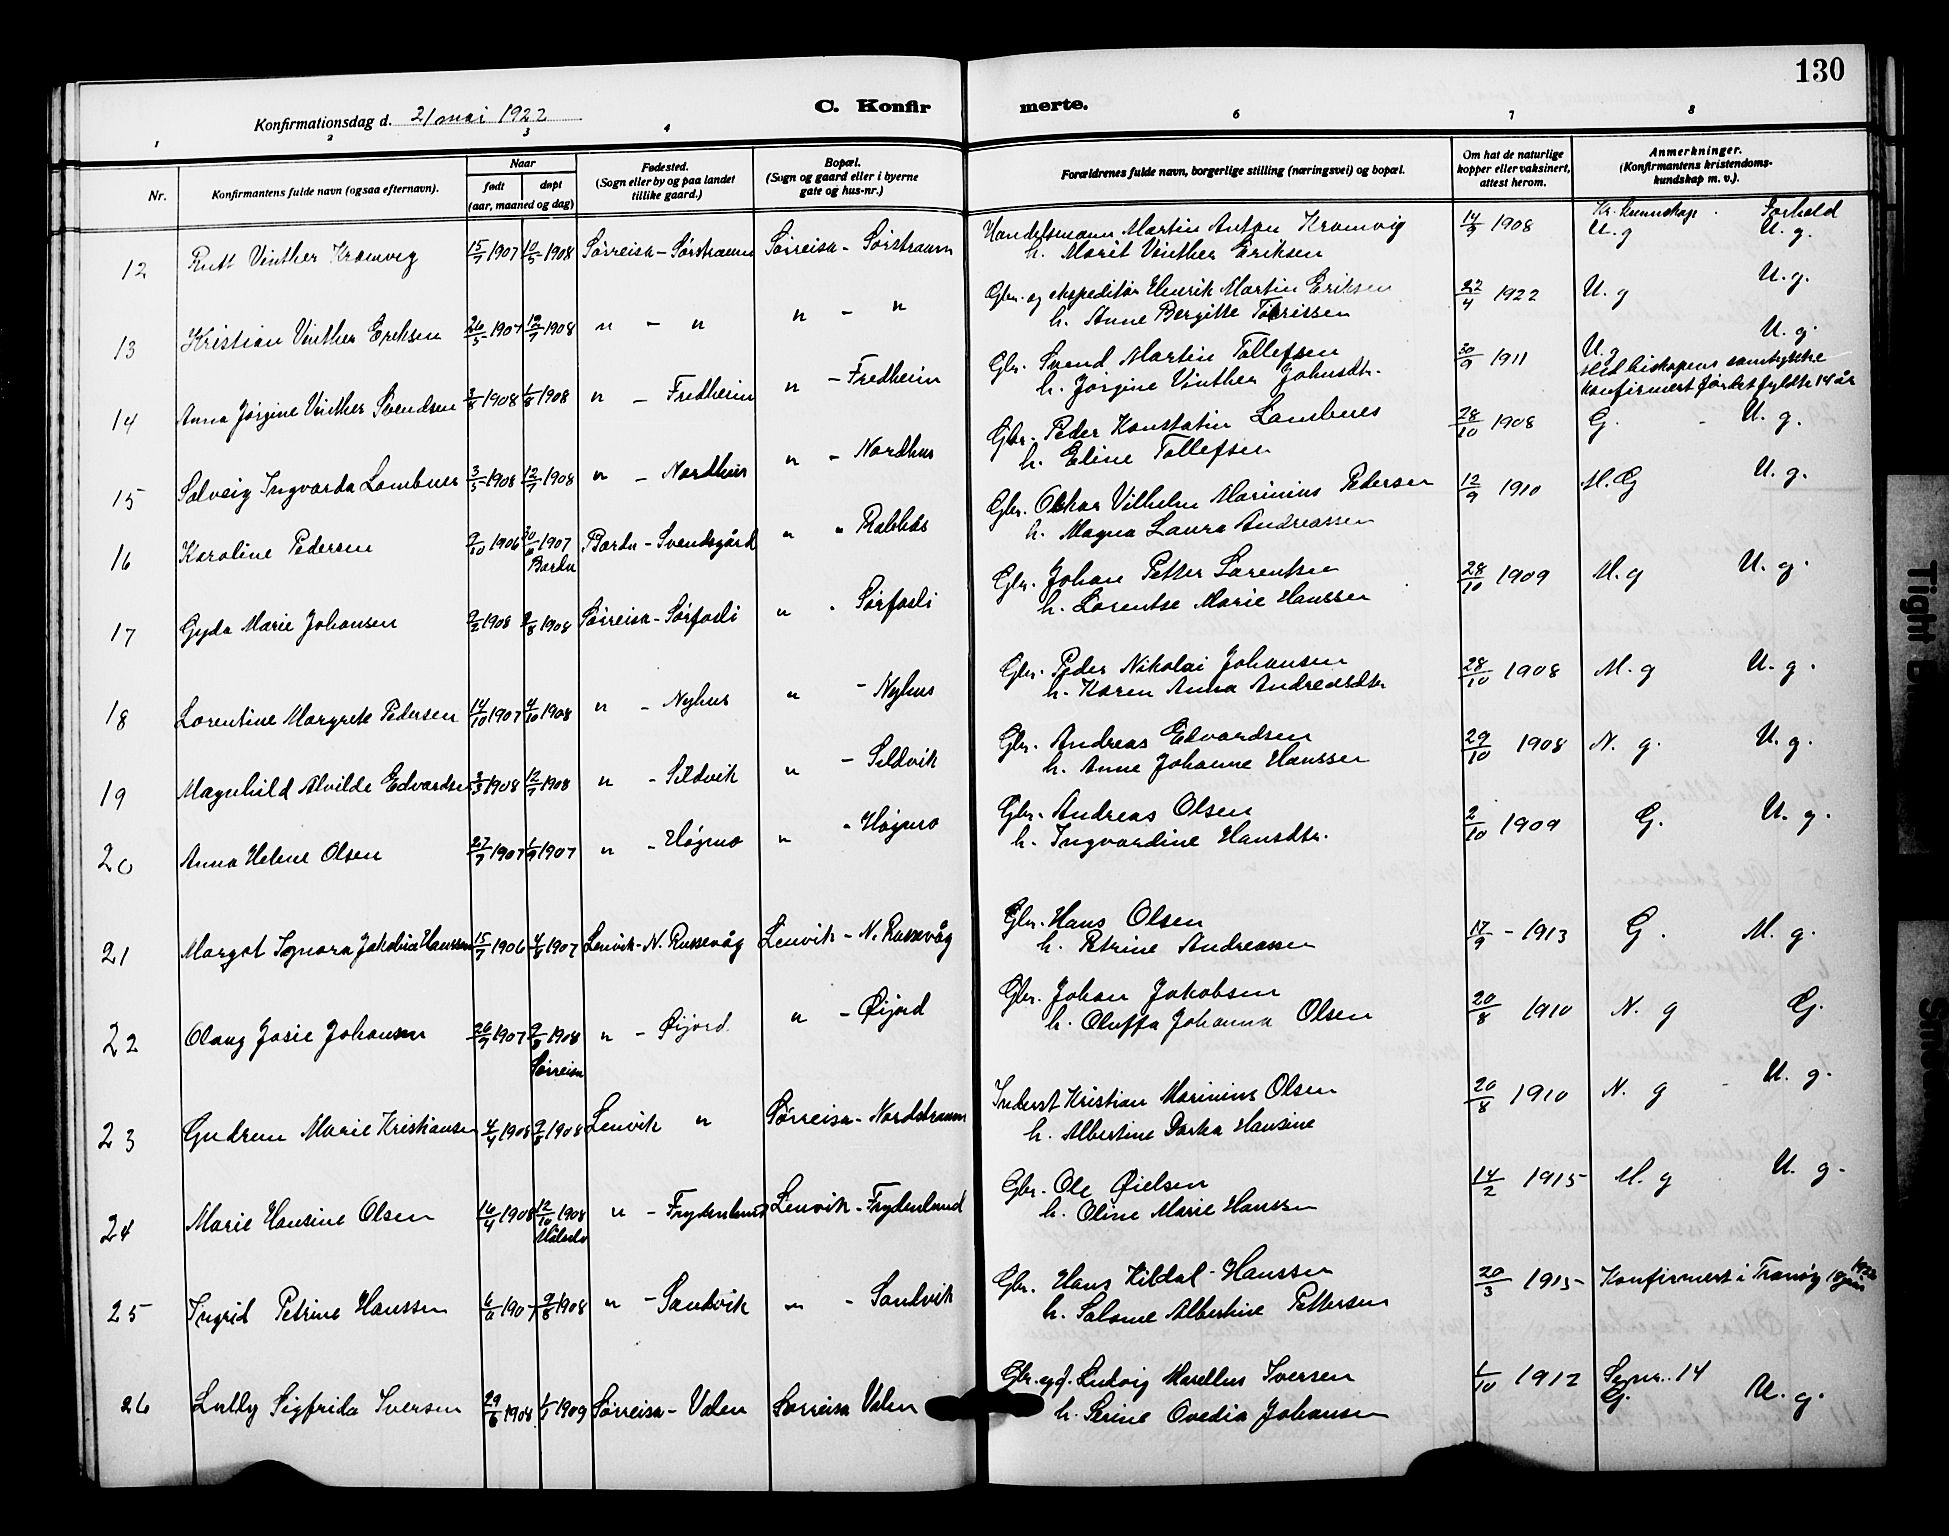 130
Konfirmationsdag d. 21 mai 1922
C. Konfirmerte.
1 2 3 4 6 7 8
Nr.
Konfirmantens fulde navn (ogsaa efternavn).
Naar
født døpt
(aar, maaned og dag)
Fødested.
(Sogn eller by og paa landet
tillike gaard.)
Bopæl.
(Sogn og gaard eller i byerne
gate og hus-nr.)
Forældrenes fulde navn, borgerlige stilling (næringsvei) og bopæl.
Om hat de naturlige
kopper eller vaksinert,
attest herom.
Anmerkninger.
(Konfirmantens kristendoms-
kundskap m. v.).
Kr. kunnskap. Forhold
12 Rutt Vinther Kramvig 15/7 1907 10/5 1908 Sørreisa - Sørstraumn Sørreisa - Sørstraumn Handelsmann Martin Anton Kramvig 14/9 1908 U. g U. g.
h. Marit Vinther Eriksen
13 Kristian Vinther Eriksen 26/5 1907 12/7 1908 " - " " - " Gbr. og ekspeditør Henrik Martin Eriksen 22/4 1922 U. g U. g.
h. Anne Bergitte Tørrissen
14 Anna Jørgine Vinther Svendsen 3/8 1908 1/8 1908 " - Fredheim " - Fredheim Gbr. Svend Martin Tollefsen 30/9 1911 U. g U. g.
h. Jørgine Vinther Johnsdtr.
Med biskopens samtykke
konfirmert før det fyldte 14 år
15 Solveig Ingvarda Lambnes 3/5 1908 12/7 1908 " - Nordhus " - Nordhus Gbr. Peder Konstatin Lambnes 28/10 1908 G. - U. g.
h. Eline Tollefsen
16 Karoline Pedersen 9/10 1906 30/6 1907 Bardu - Svendsgård " " Rabbås Gbr. Oskar Vilhelm Marinius Pedersen 12/9 1910 M. G U. g.
Bardu
h. Magna Laura Andreassen
17 Gyda Marie Johansen 9/2 1908 9/8 1908 Sørreisa - Sørfosli " - Sørfosli Gbr. Johan Petter Lorentsen 28/10 1909 M. g U. g.
h. Lorentse Marie Hanssen
18 Lorentine Margrete Pedersen 14/10 1907 4/10 1908 " - Nyhus " - Nyhus Gbr. Peder Nikolai Johansen 28/10 1908 M. g U. g.
h. Karen Anna Andreasdtr
19 Magnhild Alvilde Edvardsen 3/3 1908 12/7 1908 " - Sildvik " - Sildvik Gbr. Andreas Edvardsen 29/10 1908 N. g. U. g.
h. Anne Johanne Hanssen
20 Anna Helene Olsen 27/7 1907 1/9 1907 " - Høgmo " - Høgmo Gbr. Andreas Olsen 2/10 1909 G. U. g.
h. Ingvardine Hansdtr.
21 Margot Ignora Jakobia Hanssen 15/7 1906 4/8 1907 Lenvik - N. Russevåg Lenvik - N. Russevåg Gbr. Hans Olsen 17/9 - 1913 G. M. g.
h. Petrine Andreassen
22 Olaug Josie Johansen 26/9 1907 9/8 1908 " - Øijord " - Øijord Gbr. Johan Jakobsen 20/8 1910 N. g G.
Sørreisa
h. Oluffa Johanna Olsen
23 Gudrun Marie Kristiansen 4/4 1908 9/8 1908 Lenvik " Sørreisa - Nordstraumn Inderst Kristian Marinius Olsen 20/8 1910 N. g - U. g.
h. Albertine Dorka Hansine
24 Marie Hansine Olsen 16/4 1908 12/10 1908 " - Frydenlund Lenvik - Frydenlund Gbr. Ole Øielsen 14/2 1915 M. g U. g.
Målselv
h. Oline Marie Hanssen
25 Ingrid Petrine Hanssen 6/6 1907 9/8 1908 " - Sandvik " - Sandvik Gbr. Hans Kildal-Hanssen 20/3 1915 Konfirmert i Tranøy 18 juni 1922
h. Salome Albertine Pettersen
26 Lully Sigfrida Iversen 29/6 1908 1/1 1909 Sørreisa - Valen Sørreisa Valen Gbr. og f. Ludvig Marellius Iversen 1/10 1912 Sognr. 14
G. U. g.
h. Serine Ovedia Johansen
Tight